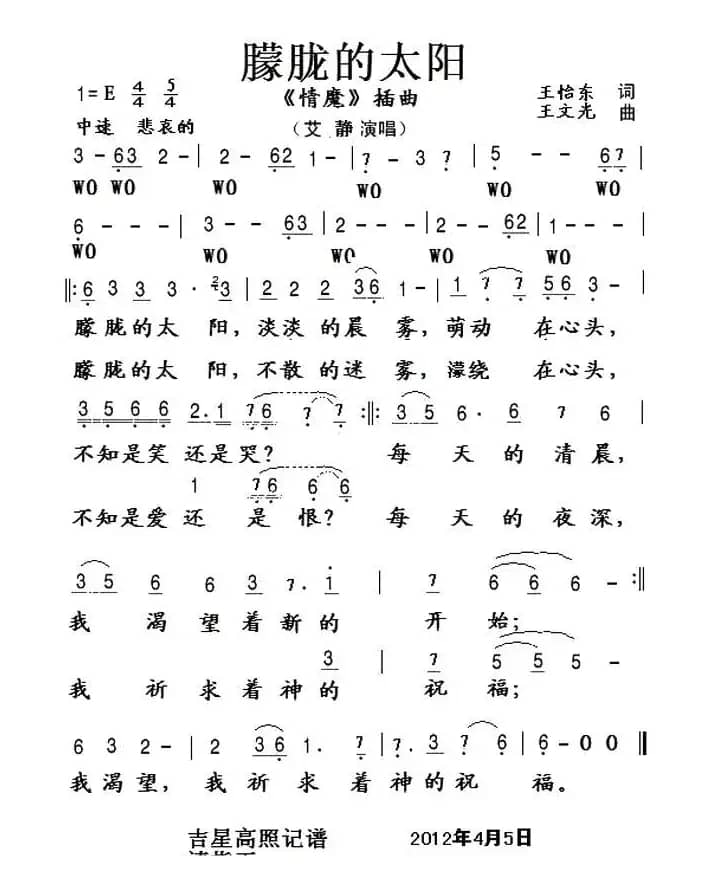 朦胧的太阳
1=E 4/4 5/4 《情魔》插曲 王怡东 词
王文光 曲
中速 悲哀的 (艾 静 演唱)
3 - 63 2 - | 2 - 62 1 - | 7 - 3 7 | 5 - - 67 |
WO WO WO WO WO WO
6 - - - | 3 - - 63 | 2 - - - | 2 - - 62 | 1 - - - |
WO WO WO WO WO
||: 6 3 3 3 · 23 | 2 2 2 36 1 - | 1 7 7 56 3 - |
朦胧的太 阳, 淡淡 的晨 雾, 萌动 在心头,
朦胧的太 阳, 不散 的迷 雾, 濛绕 在心头,
3 5 6 6 2. 1 76 7 7 :||: 35 6 · 6 7 6 |
不知是笑 还是哭? 每 天 的 清 晨,
1 76 6 6
不知是爱 还 是 恨? 每 天 的 夜 深,
35 6 6 3 7. 1 | 7 6 6 6 - :||
我 渴 望 着 新 的 开 始;
3 | 7 5 5 5 -
我 祈 求 着 神 的 祝 福;
6 3 2 - | 2 36 1. 7 | 7. 3 7 6 | 6 - 0 0 ||
我 渴 望, 我 祈 求 着 神 的 祝 福。
吉星高照记谱 2012年4月5日